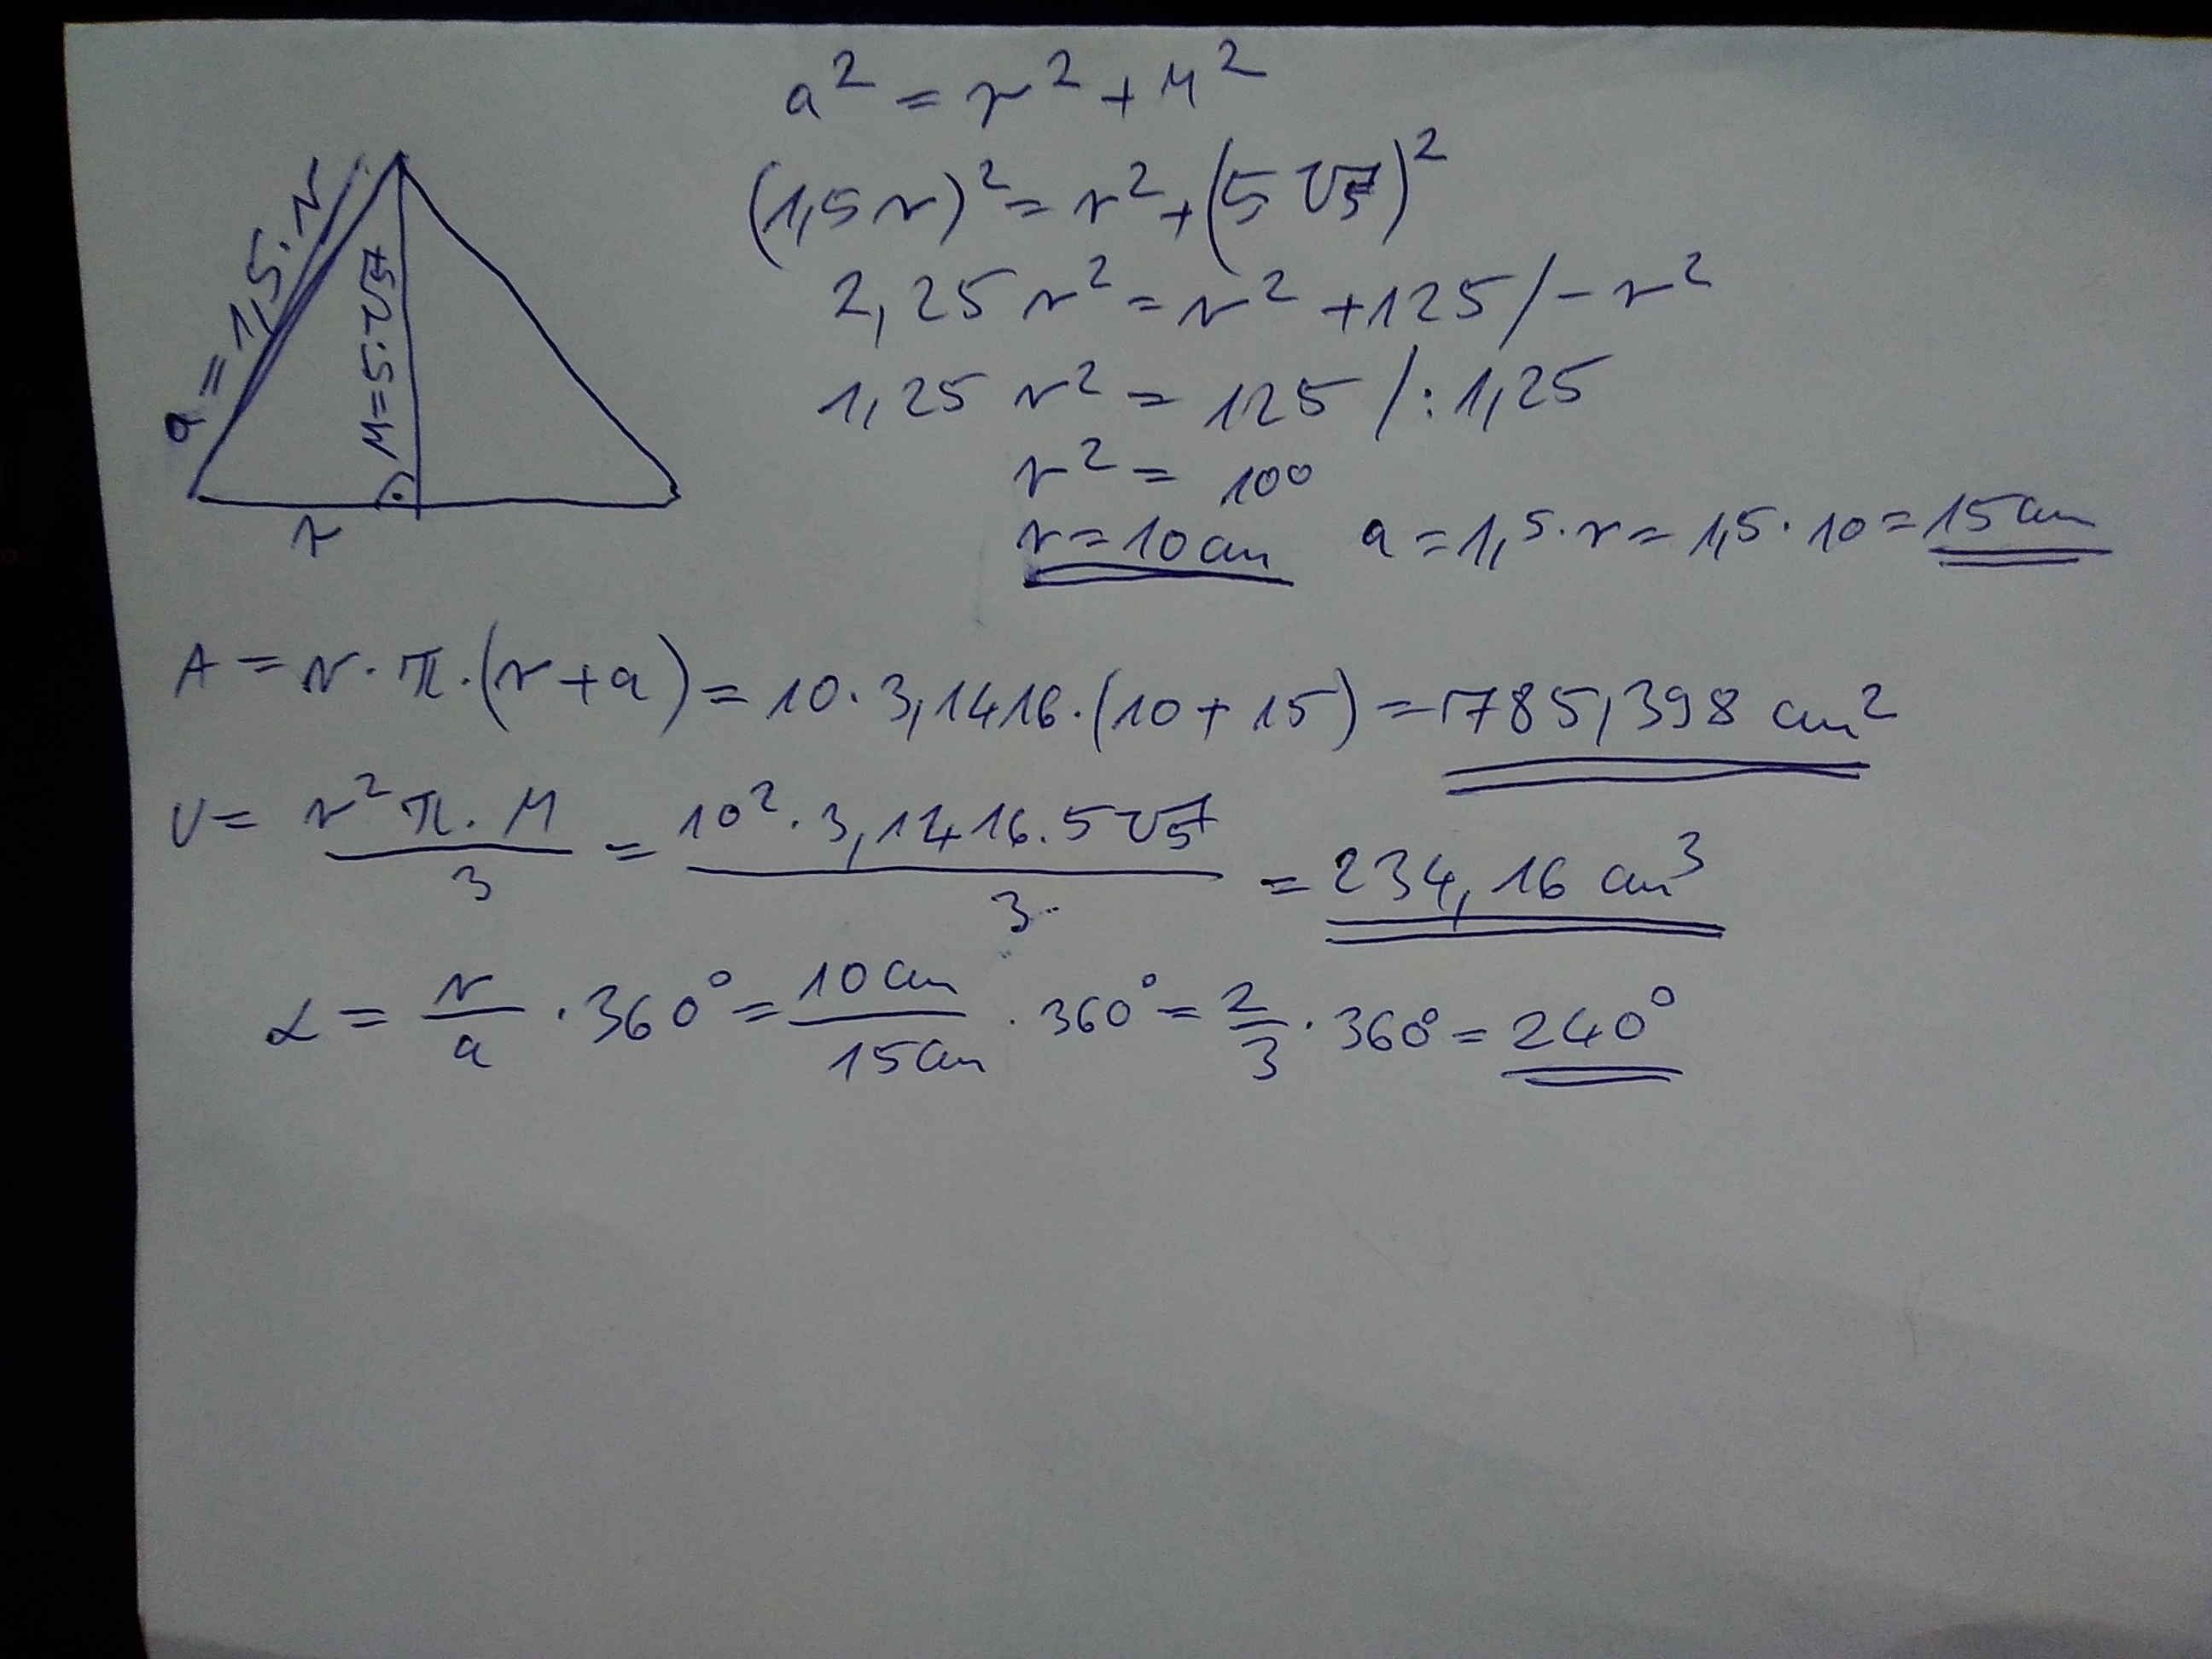 a² = r² + M²
(1,5r)² = r² + (5√5)²
2,25r² = r² + 125 / - r²
1,25 r² = 125 / : 1,25
r² = 100
r = 10 cm   a = 1,5 · r = 1,5 · 10 = 15 cm
a = 1,5 · r
M = 5 · √5
r
A = r · π · (r + a) = 10 · 3,1416 · (10 + 15) = 785,398 cm²
V = r² π · M / 3 = 10² · 3,1416 · 5√5 / 3 = 234,16 cm³
α = r / a · 360° = 10 cm / 15 cm · 360° = 2/3 · 360° = 240°